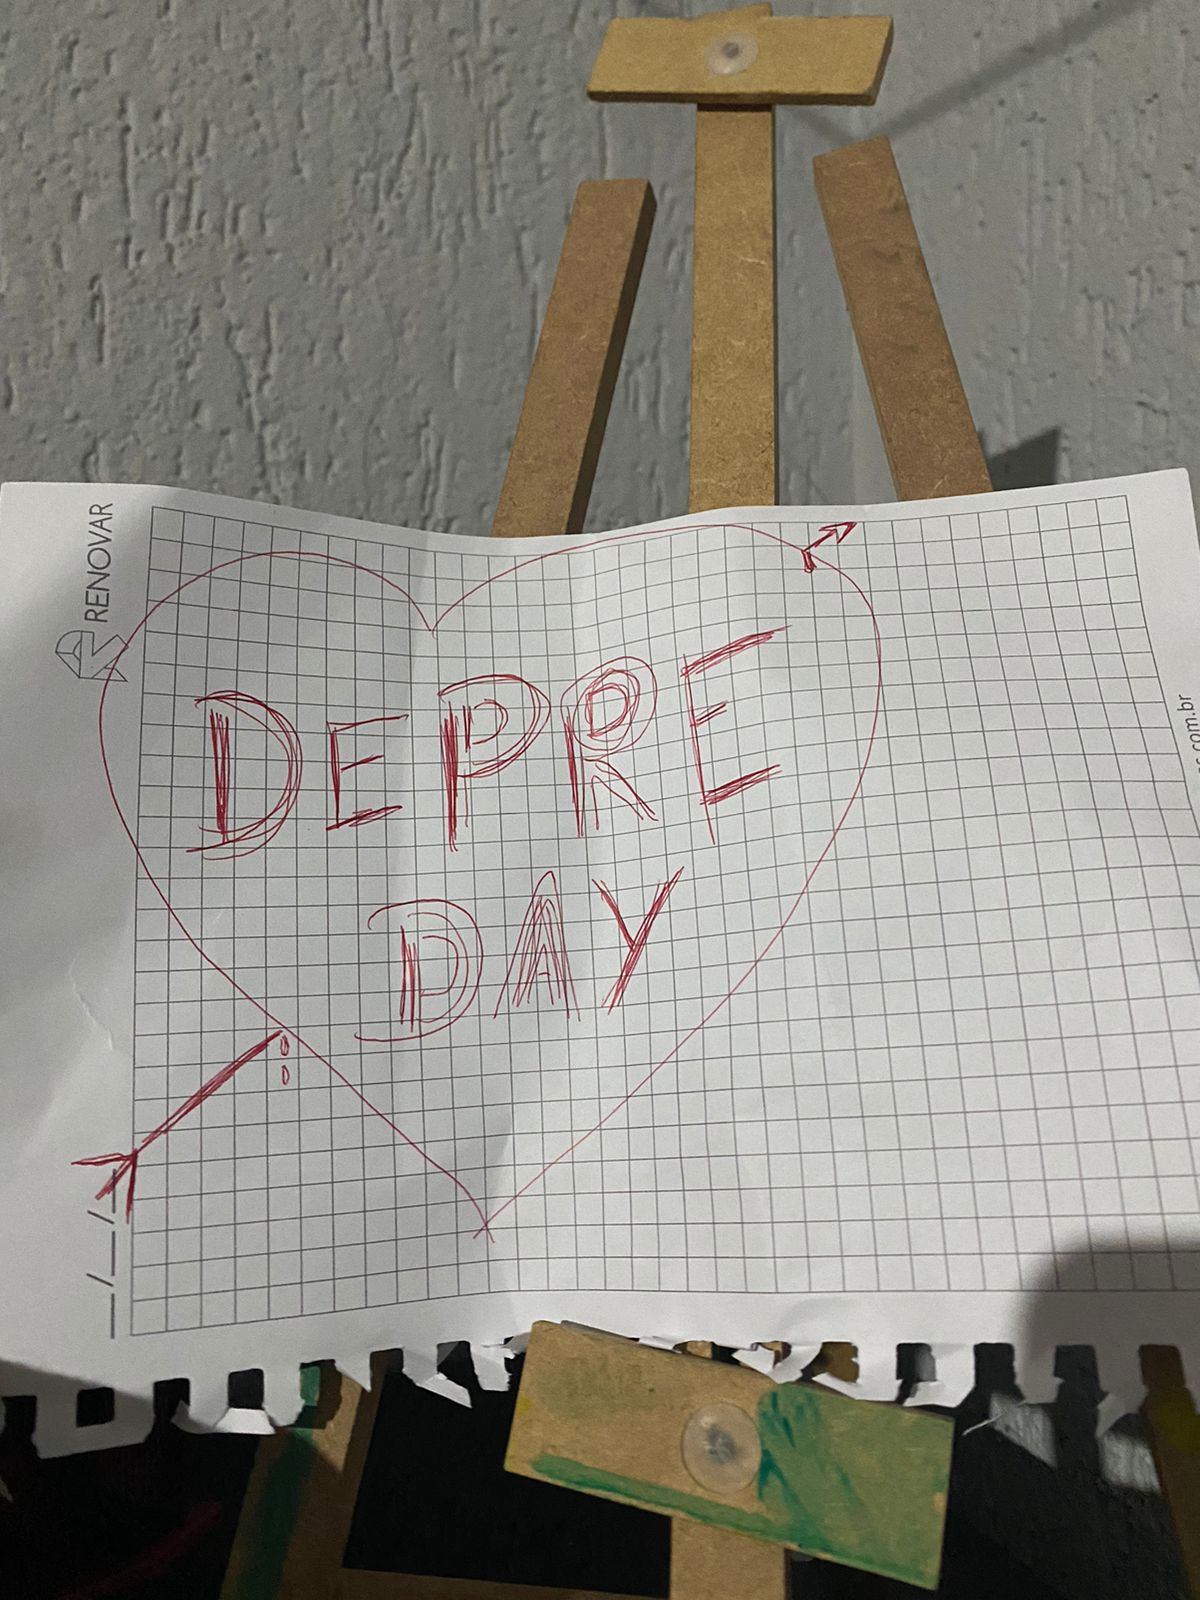 RENOVAR
DEPRE
DAY
__/__/__
.com.br